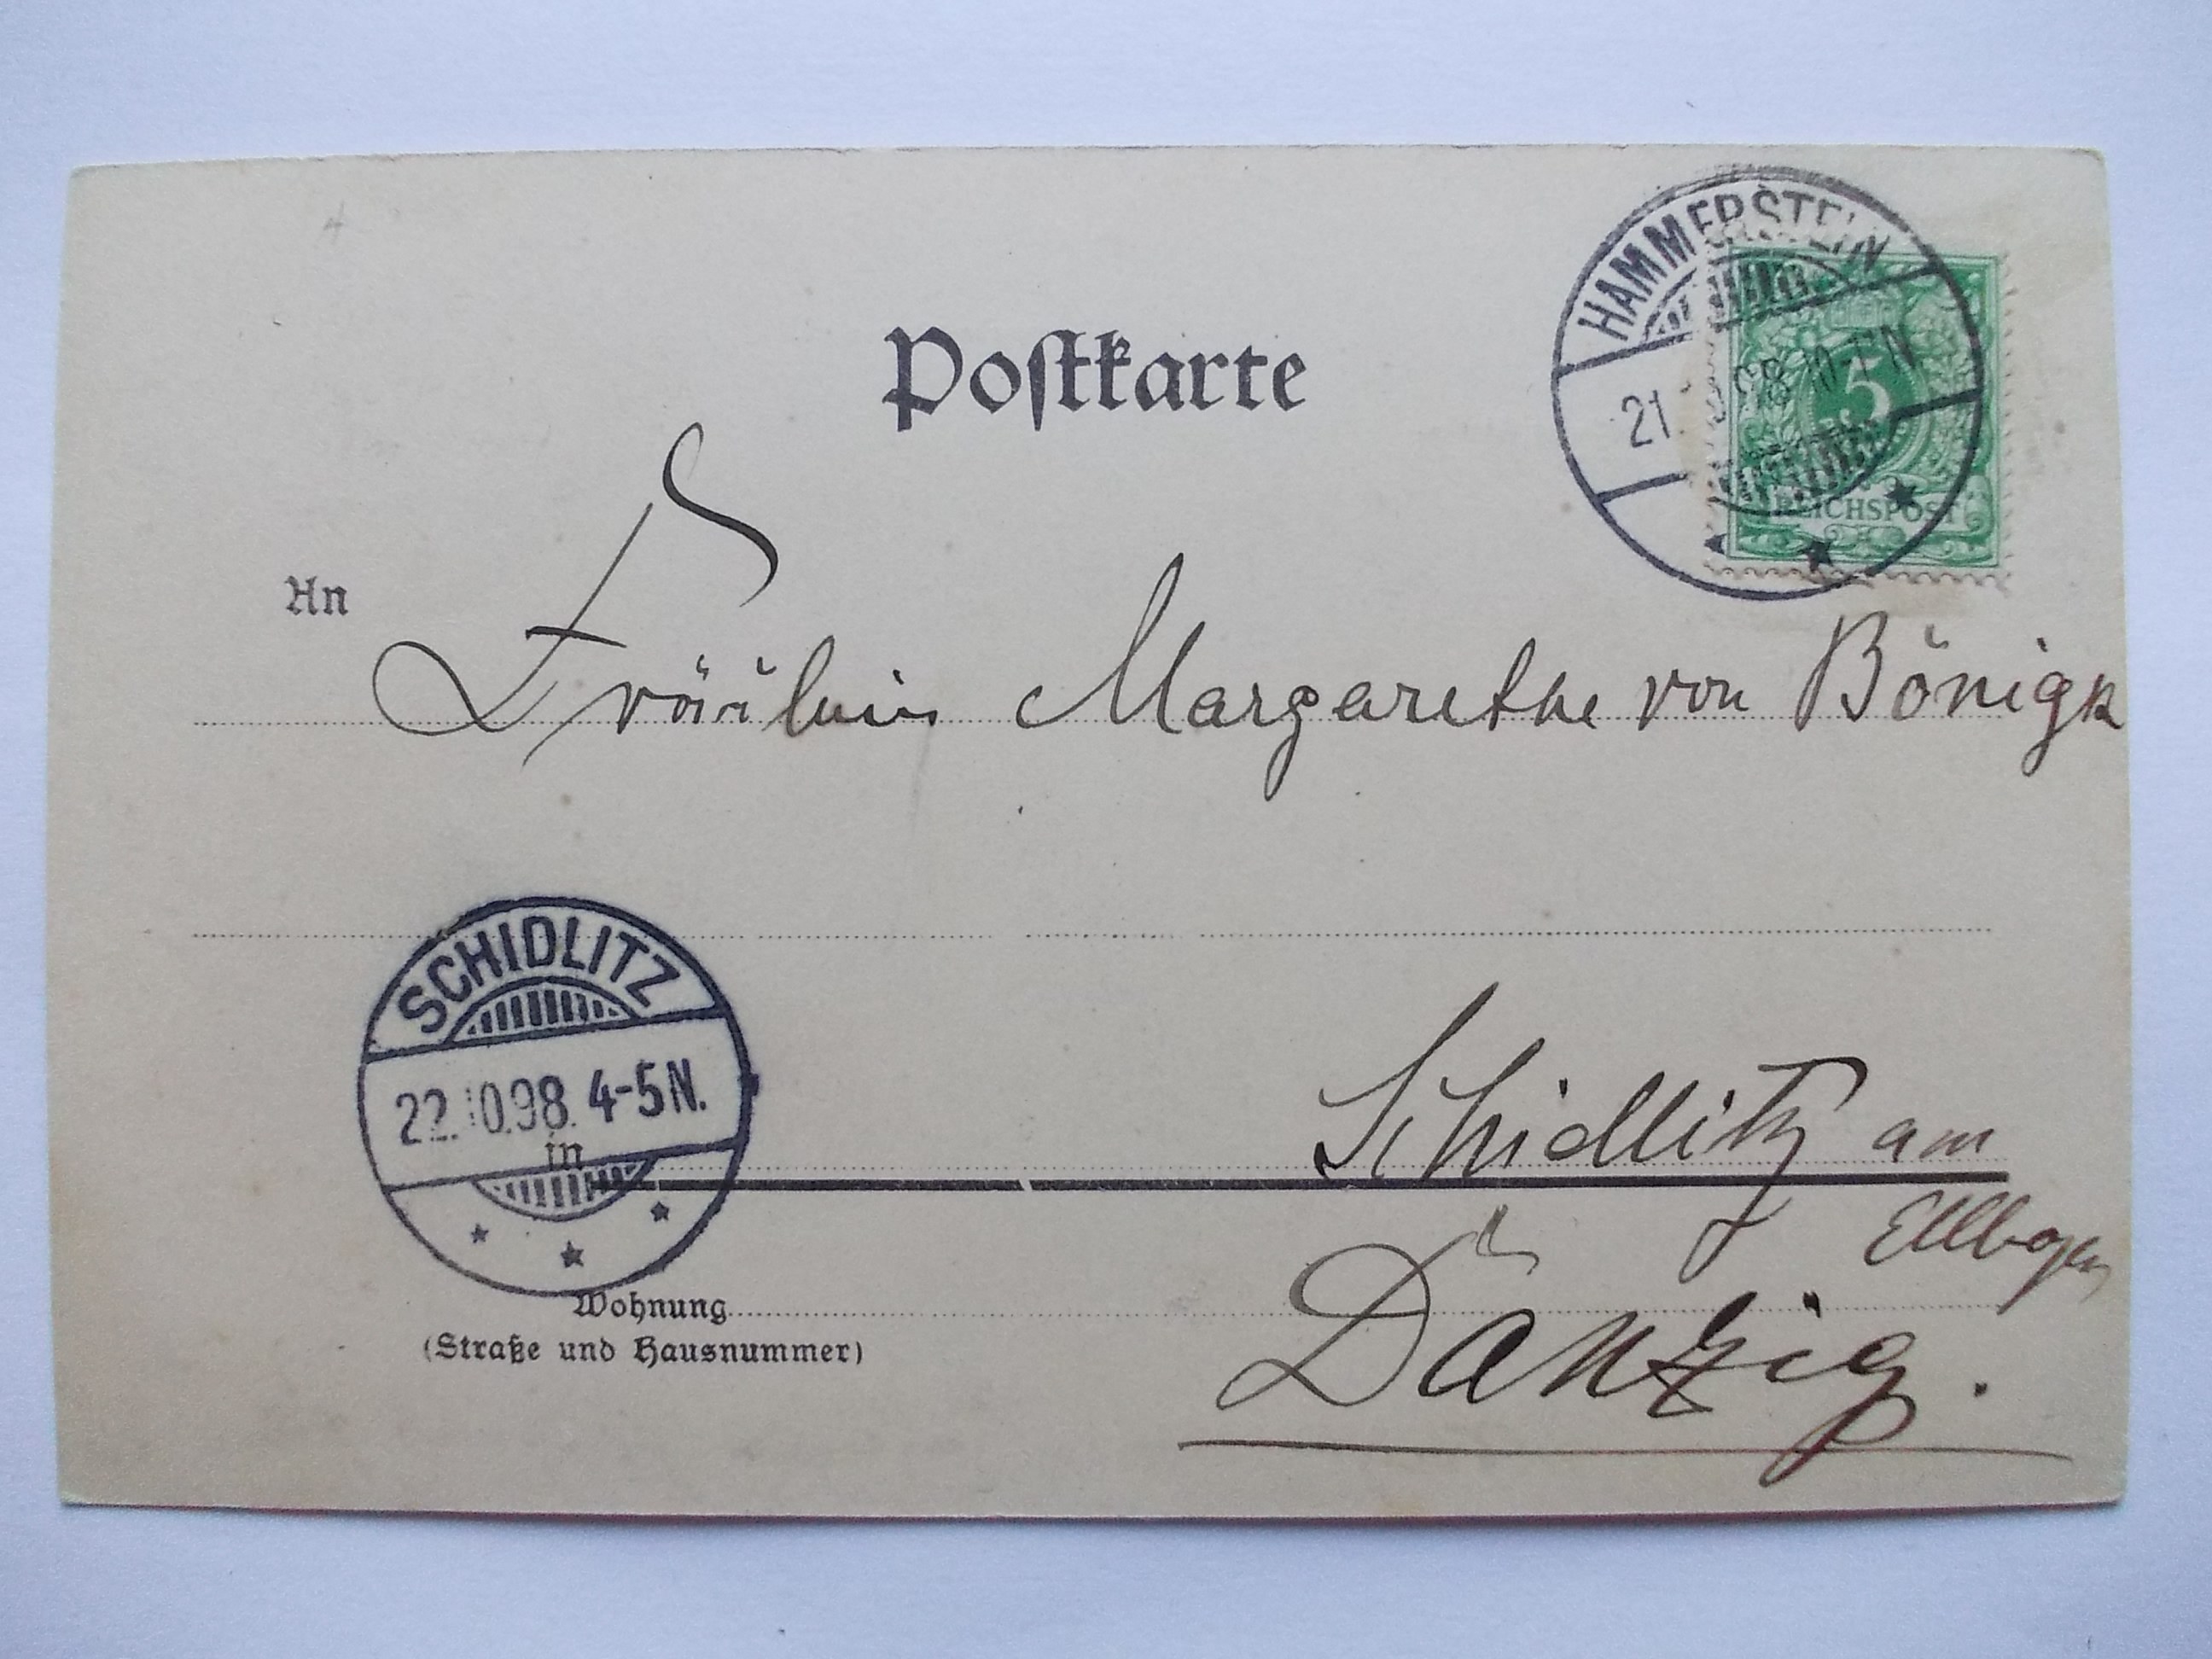 Postkarte
HAMMERSTEIN
21. 98
5
REICHSPOST
An
Fräulein Margarethe von Bönigk
SCHIDLITZ
22.10.98. 4-5N.
in
Schidlitz am
Ellbogen
Wohnung
Danzig.
(Straße und Hausnummer)